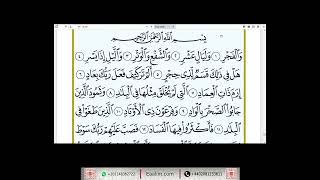 بِسْمِ ٱللَّهِ ٱلرَّحْمَٰنِ ٱلرَّحِيمِ
وَٱلْفَجْرِ ١ وَلَيَالٍ عَشْرٍ ٢ وَٱلشَّفْعِ وَٱلْوَتْرِ ٣ وَٱلَّيْلِ إِذَا يَسْرِ ٤
هَلْ فِي ذَٰلِكَ قَسَمٌ لِّذِي حِجْرٍ ٥ أَلَمْ تَرَ كَيْفَ فَعَلَ رَبُّكَ بِعَادٍ ٦
إِرَمَ ذَاتِ ٱلْعِمَادِ ٧ ٱلَّتِي لَمْ يُخْلَقْ مِثْلُهَا فِي ٱلْبِلَٰدِ ٨ وَثَمُودَ ٱلَّذِينَ
جَابُوا۟ ٱلصَّخْرَ بِٱلْوَادِ ٩ وَفِرْعَوْنَ ذِي ٱلْأَوْتَادِ ١٠ ٱلَّذِينَ طَغَوْا۟ فِي
ٱلْبِلَٰدِ ١١ فَأَكْثَرُوا۟ فِيهَا ٱلْفَسَادَ ١٢ فَصَبَّ عَلَيْهِمْ رَبُّكَ سَوْطَ
Eaalim.com